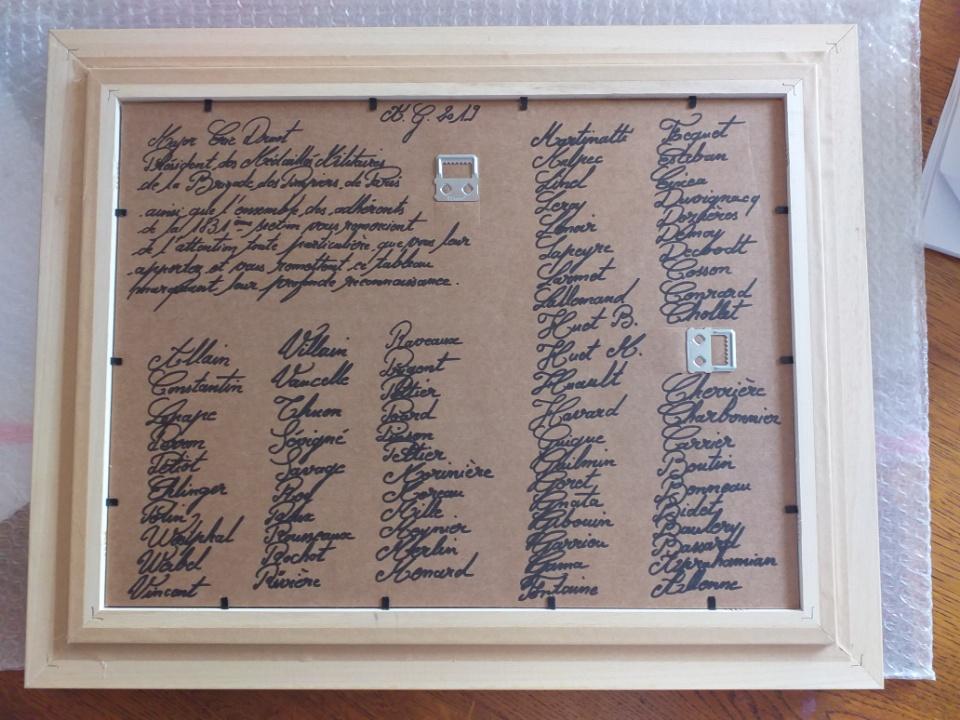 K. G. 2019
Major Luc Drust
Président des Médaillés Militaires
de la Brigade des Pompiers de Paris
ainsi que l'ensemble des adhérents
de la 1831 ème section vous remercient
de l'attention toute particulière que vous leur
apportez et vous remettent ce tableau
marquant leur profonde reconnaissance.
Allain
Constantin
Lotiot
Ehlinger
Westphal
Weibel
Vincent
Villain
Vancelle
Thuon
Sévigné
Savage
Roy
Rousseaux
Rochot
Rivière
Raveaux
Peltier
Morinière
Moreau
Mille
Meynier
Merlin
Menard
Martinatti
Malpec
Lind
Leroy
Lenoir
Lapeyre
Larmet
Lallemand
Huet B.
Huet M.
Huault
Havard
Guigue
Guilmin
Goret
Gnata
Gibouin
Garrieu
Gama
Fontaine
Fequet
Esteban
Duvignacq
Dezpères
Demay
Debodt
Cosson
Conrard
Chollet
Cherrière
Charbonnier
Carrier
Boutin
Bonneau
Bidet
Baulery
Bassard
Abrahamian
Allenne